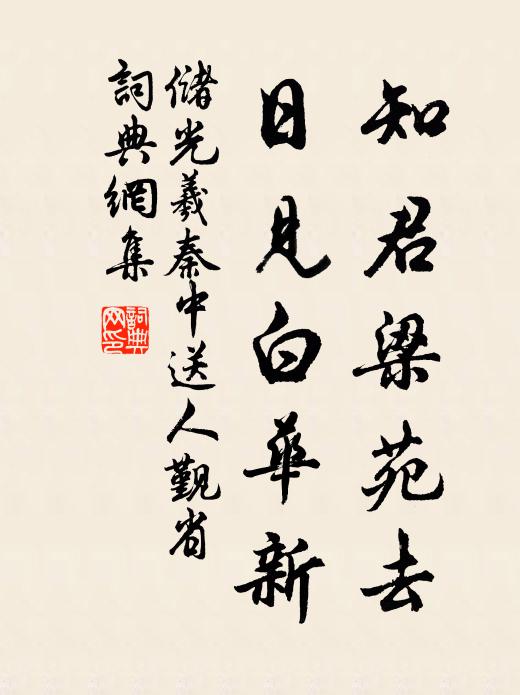 知君梁苑去
日見白華新
儲光羲秦中送人觀省
詞典網集
詞典网印